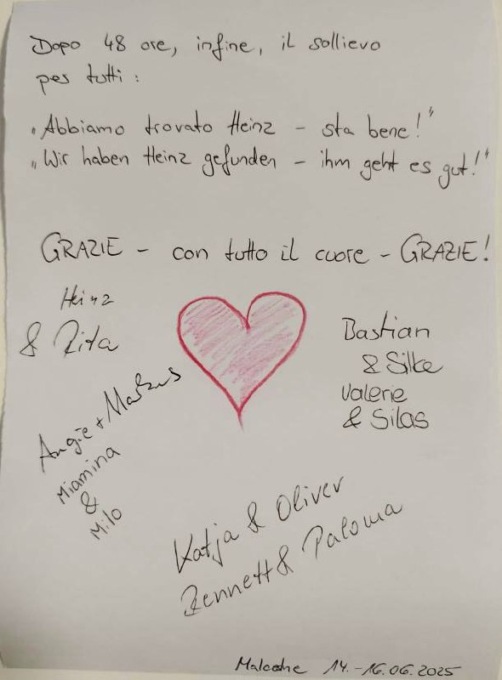 Dopo 48 ore, infine, il sollievo
per tutti:
„Abbiamo trovato Heinz – sta bene!“
„Wir haben Heinz gefunden – ihm geht es gut!“
GRAZIE – con tutto il cuore – GRAZIE!
Heinz
& Rita
Angie + Markus
Miamina
&
Milo
Bastian
& Silke
Valerie
& Silas
Katja & Oliver
Bennett & Paloma
Malcesine 14.–16.06.2025